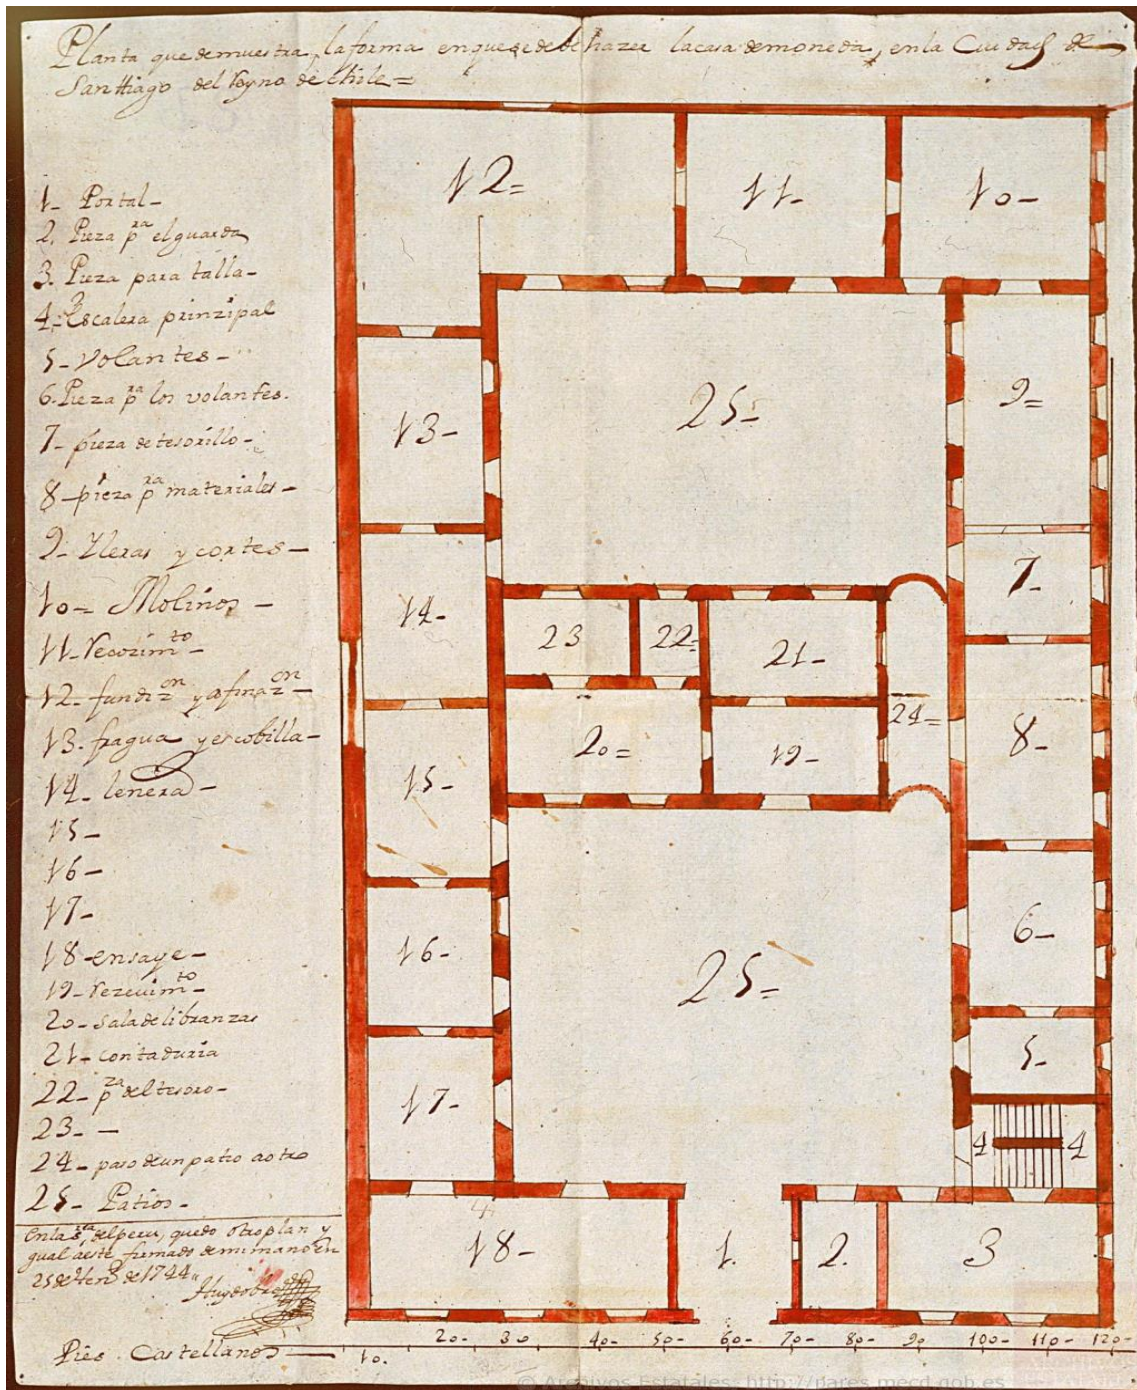 Planta que demuestra, la forma enquesedebe hazer lacasa demoneda, en la Ciudad de
Santtiago del Reyno de Chile =
1- Portal -
2. Pieza p.ra el guarda
3. Pieza para talla -
4- Escalera prinzipal
5- Volantes -
6. Pieza p.ra los volantes.
7- pieza de tesorillo -
8- pieza p.ra materiales -
9- Yleras y cortes -
10= Molinos -
11- Recozim.to -
12- fundiz.on y afinaz.on -
13. fragua y escobilla -
14- lenera -
15-
16-
17-
18- ensaye -
19- Rezevim.to -
20- sala de libranzas
21- contaduria
22- p.za del tesoro -
23- -
24- paso de un patio a otro
25- Patios -
En la del peru, quedo otro plan y
gual a este, firmado de mi mano en
25 de de 1744
Huydobro
Pies Castellanos
12=
11-
10-
13-
25-
9=
14-
23
22=
21-
7-
15-
20=
19-
24=
8-
16-
25=
6-
5-
17-
4
4
18-
1.
2.
3
10.
20-
30
40-
50-
60-
70-
80-
90
100-
110-
120-
© Archivos Estatales, http://pares.mecd.gob.es